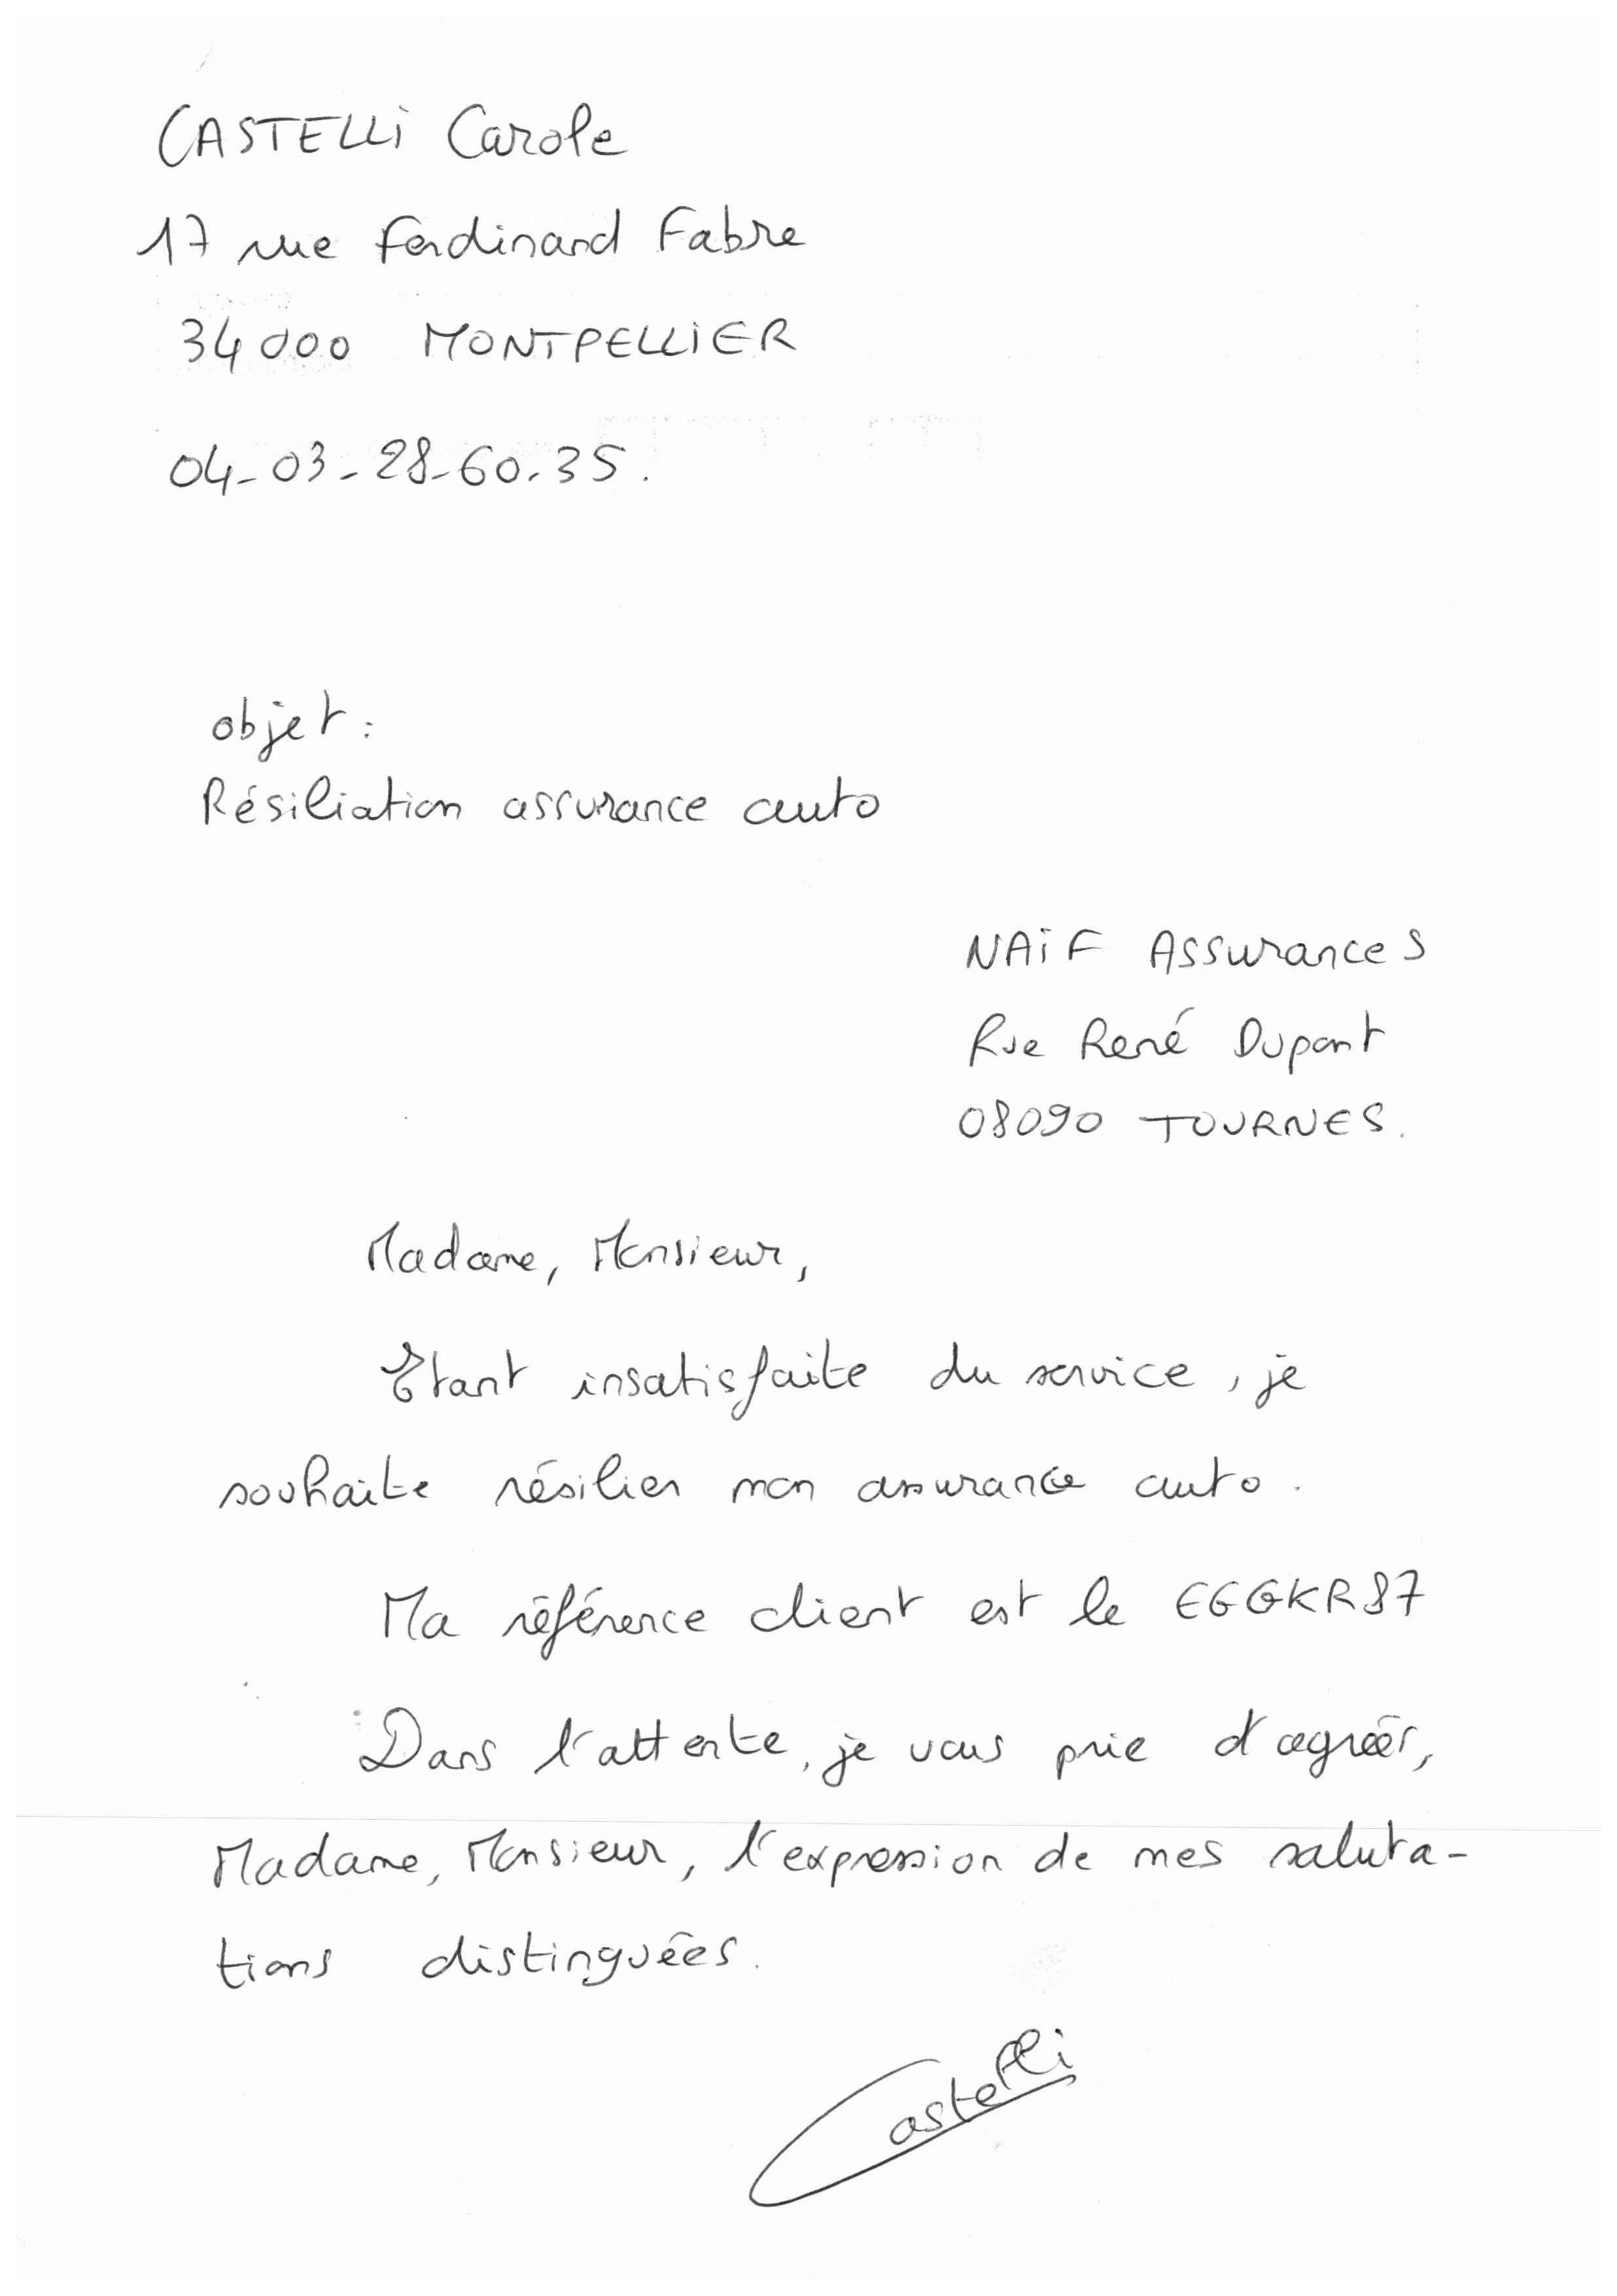 CASTELLI Carole
17 rue Ferdinand Fabre
34000 MONTPELLIER
04-03-28-60-35.
objet:
Résiliation assurance auto
NAIF Assurances
Rue René Dupont
08090 TOURNES.
Madame, Monsieur,
Etant insatisfaite du service, je
souhaite résilier mon assurance auto.
Ma référence client est le EGGKR87
Dans l'attente, je vous prie d'agréer,
Madame, Monsieur, l'expression de mes saluta-
tions distinguées.
Castelli